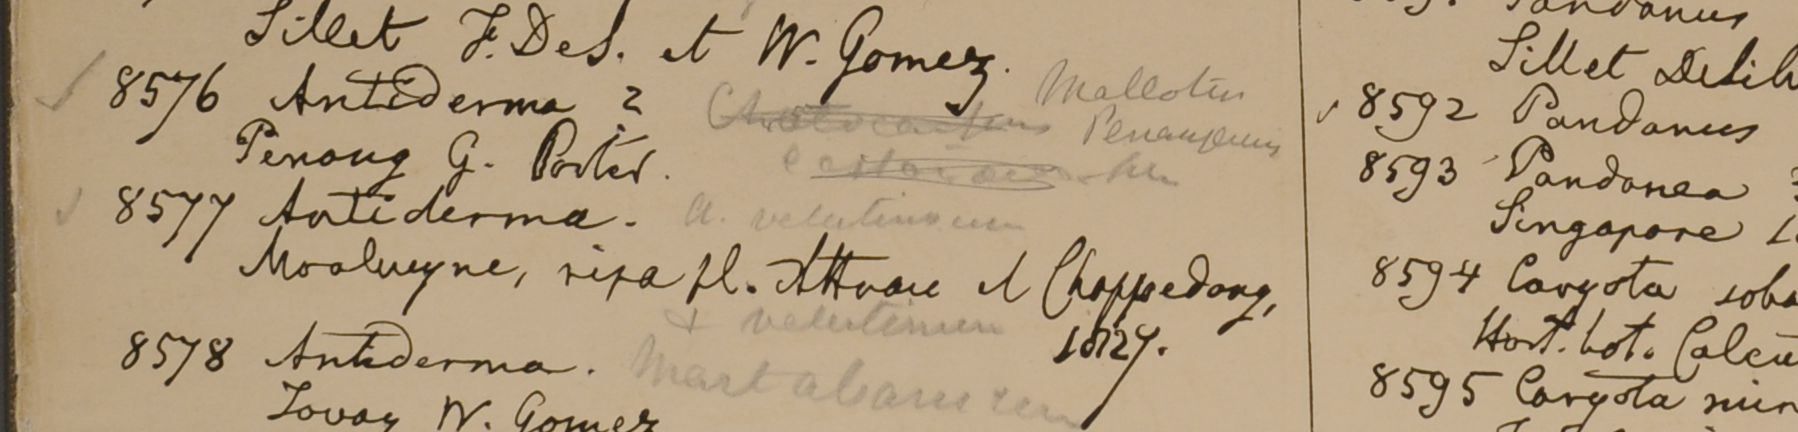 Sillet F. DeS. et W. Gomez.
8576 Antiderma ? Mallotus
Penang G. Porter. Penangensis
8577 Antiderma. A. velutinosum
Moalmeyne, ripa fl. Attran et Chappedong,
& velutinum 1827.
8578 Antiderma. Martabanicum
Tavay W. Gomez
Pandanus
Sillet DeSil
8592 Pandanus
8593 Pandanea
Singapore
8594 Caryota sobo
Hort. bot. Calcu
8595 Caryota